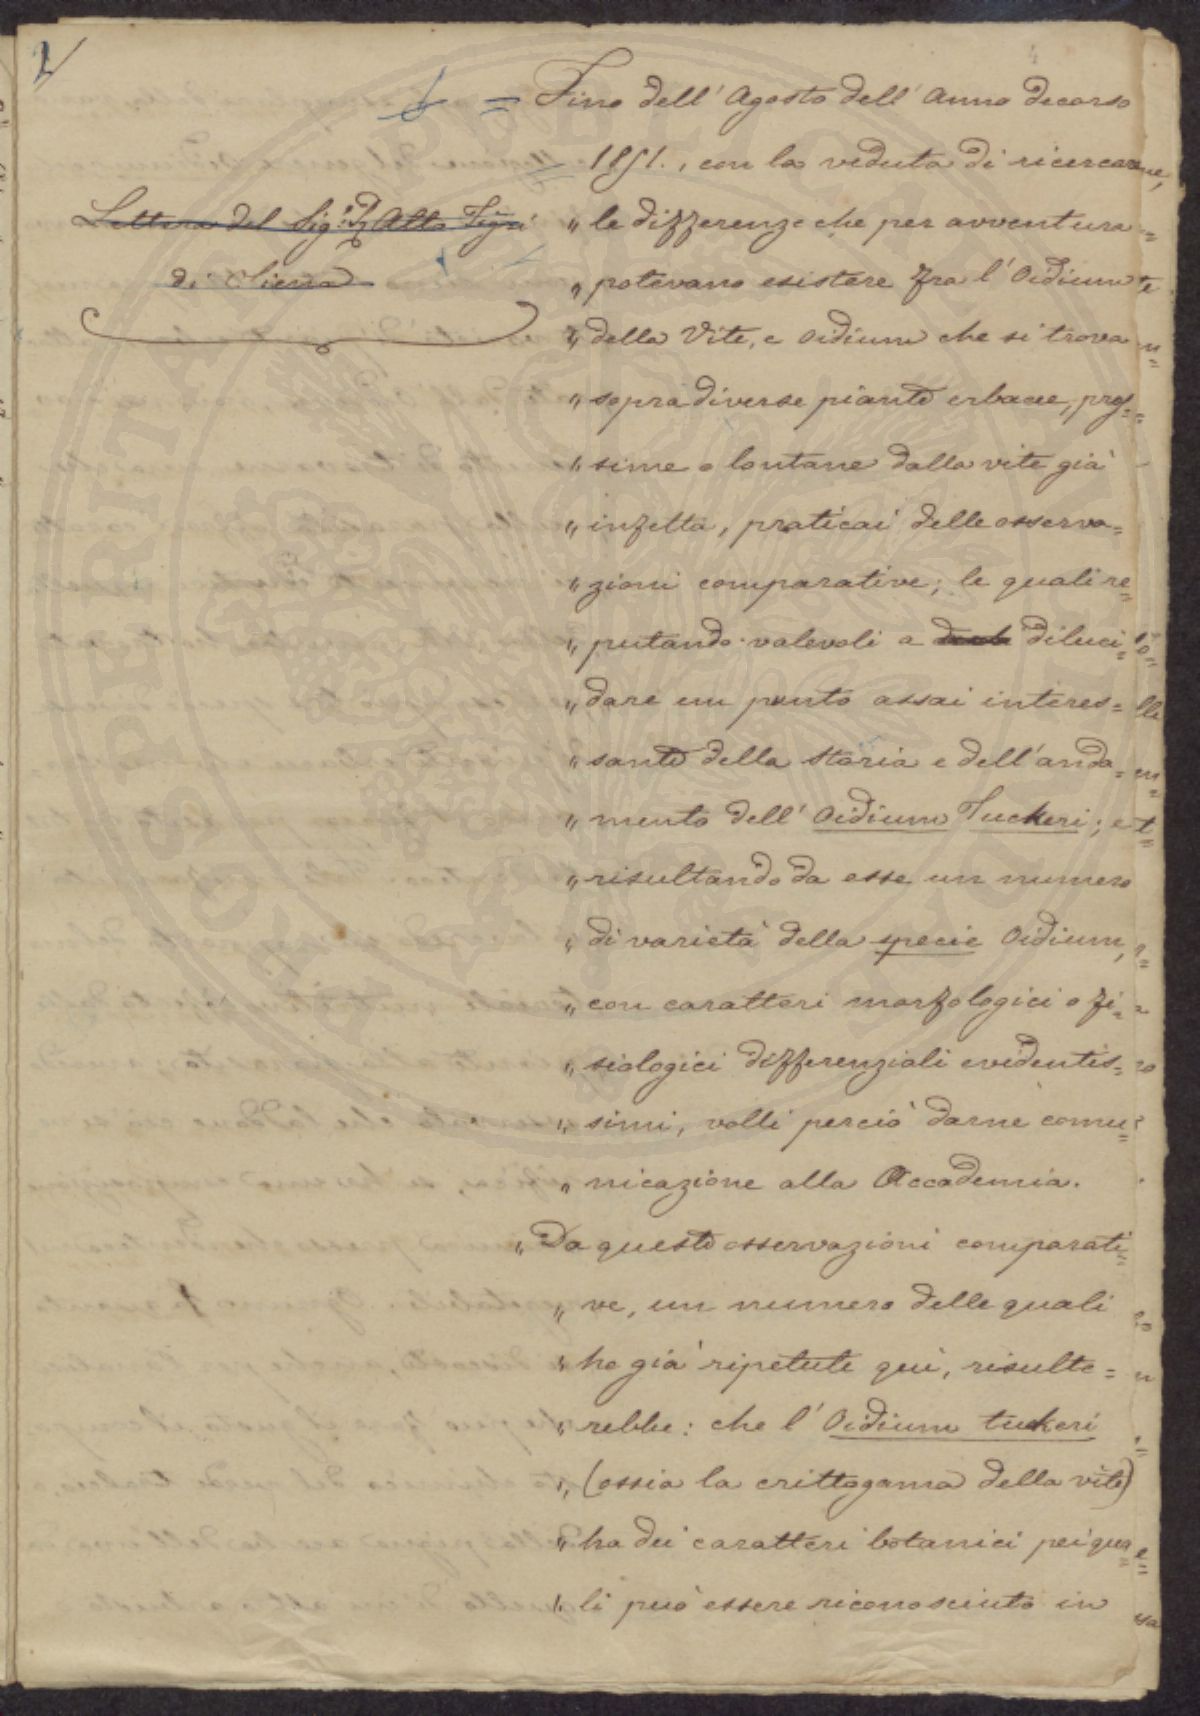 2/
4
= Fino dell' Agosto dell' Anno decorso
1851., con la veduta di ricercare
Lettera del Sig.r D. Atto Tigri
di Siena
" le differenze che per avventura
" potevano esistere fra l' Oidium
" della Vite, e Oidium che si trova
" sopra diverse piante erbacee, pros=
" sime o lontane dalla vite già
" infetta, praticai delle osserva=
" zioni comparative; le quali re=
" putando valevoli a diluci=
" dare un punto assai interes=
" sante della storia e dell' anda=
" mento dell' Oidium Tuckeri; e
" risultando da esse un numero
" di varietà della specie Oidium,
" con caratteri morfologici o fi=
" siologici differenziali evidentis=
" simi, volli perciò darne comu=
" nicazione alla Accademia.
" Da queste osservazioni comparati=
" ve, un numero delle quali
" ho già ripetute qui, risulte=
" rebbe: che l' Oidium tuckeri
" (ossia la crittogama della vite)
" ha dei caratteri botanici pei qua=
" li può essere riconosciuto in